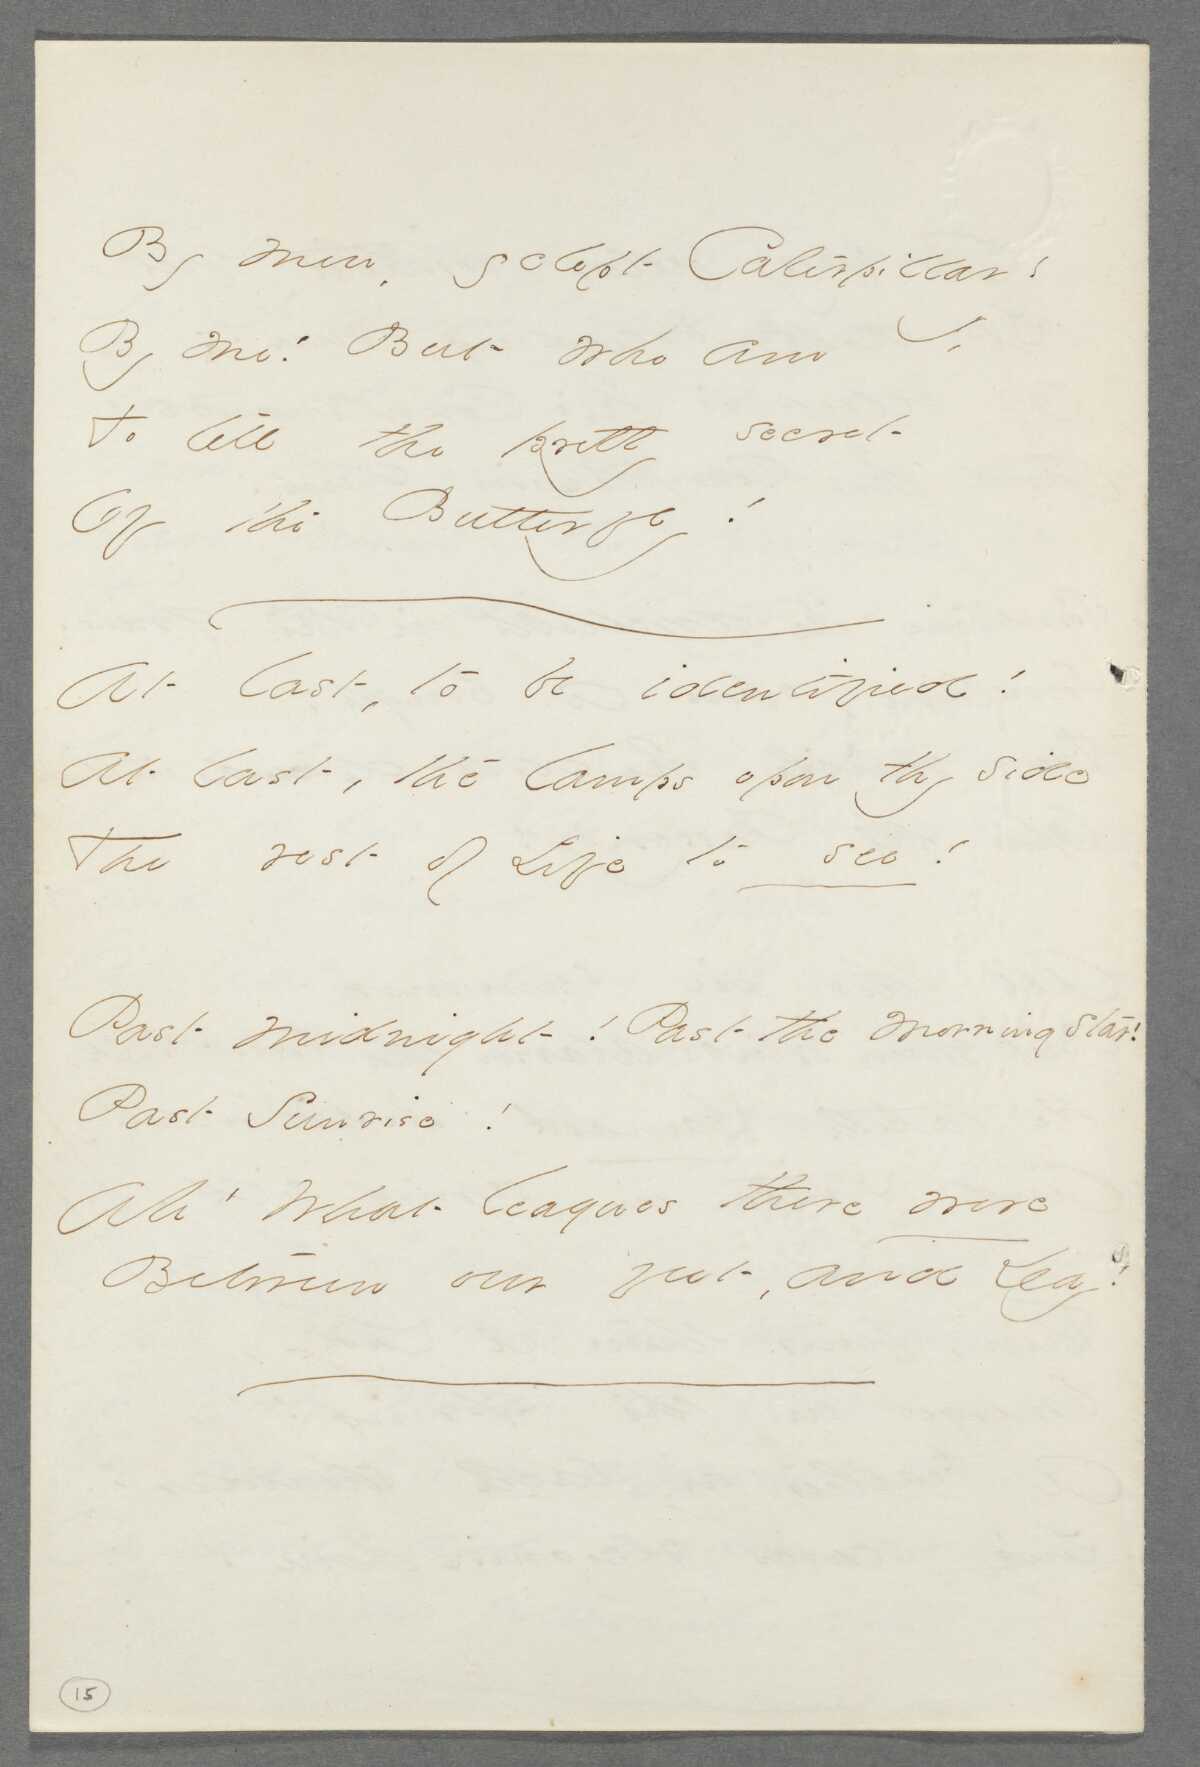 By men, yclept Caterpillar!
By me! But who am I,
To tell the pretty secret
Of the Butterfly!
At last, to be identified!
At last, the lamps upon thy side
The rest of Life to see!
Past Midnight! Past the Morning Star!
Past Sunrise!
Ah! What leagues there were
Between our feet, and Day!
15